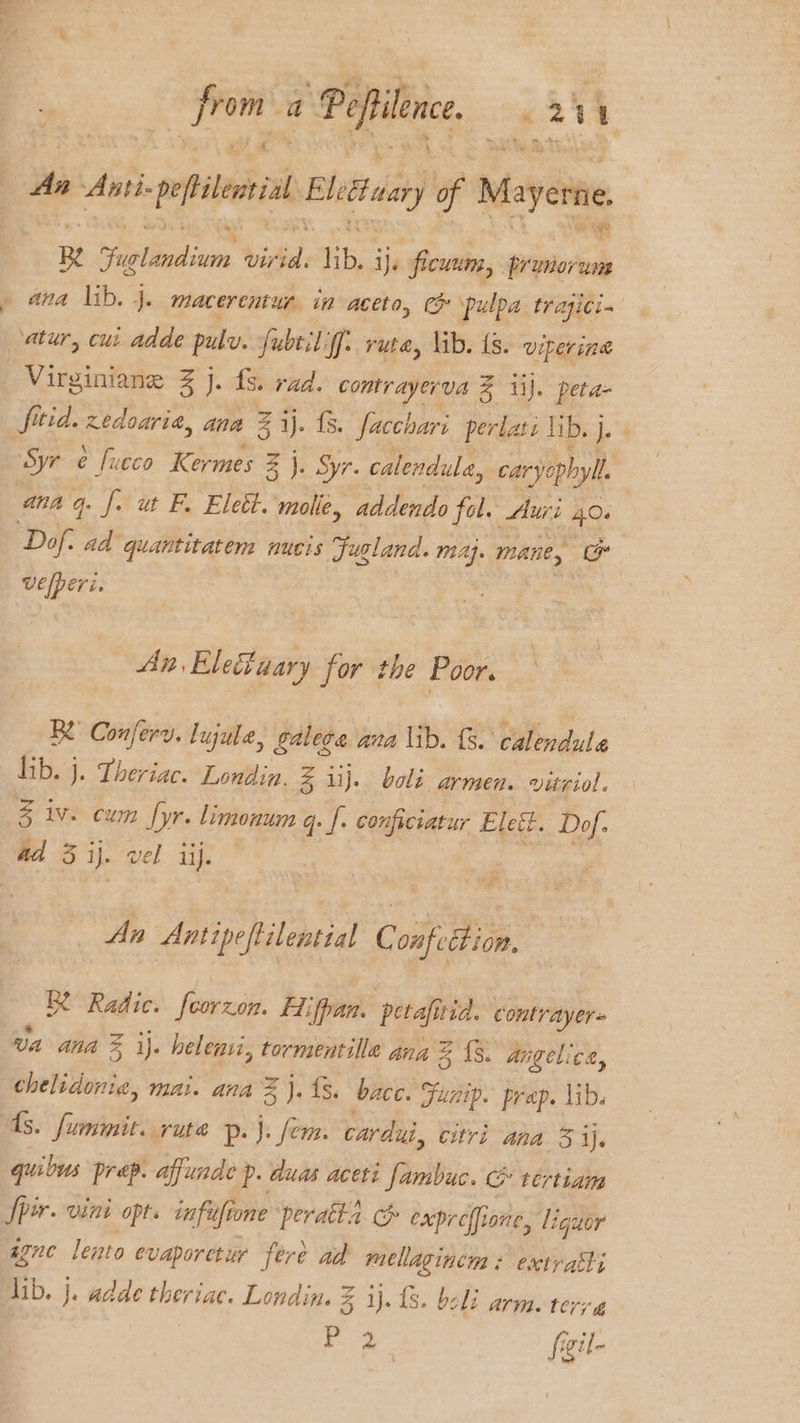 from a Peſtilence. 211
An Anti-peſtilential Electuary of Mayerne.
℞ Juglandium virid. lib. ij. ficuum, prunorum
ana lib. j. macerentur in aceto, & pulpa trajici-
atur, cui adde pulv. ſubtiliſſ. rutæ, lib. ſs. viperinæ
Virginianæ ℥ j. ſs. rad. contrayerva ℥ iij. peta-
ſitid. zedoariæ, ana ℥ ij. ſs. ſacchari perlati lib. j.
Syr è ſucco Kermes ℥ j. Syr. calendulæ, caryophyll.
ana q. ſ. ut F. Elect. molle, addendo fol. Auri 40.
Doſ. ad quantitatem nucis Jugland. maj. mane, &
veſperi.
An Electuary for the Poor.
℞ Conſerv. lujulæ, galegæ ana lib. ſs. calendulæ
lib. j. Theriac. Londin. ℥ iij. boli armen. vitriol.
℥ iv. cum ſyr. limonum q. ſ. conficiatur Elect. Doſ.
ad ʒ ij. vel iij.
An Antipeſtilential Confection.
℞ Radic. ſcorzon. Hiſpan. petaſitid. contrayer-
va ana ℥ ij. helenii, tormentillæ ana ℥ ſs. angelicæ,
chelidoniæ, mai. ana ℥ j. ſs. bacc. Junip. præp. lib.
ſs. ſummit. rutæ p. j. ſem. cardui, citri ana ʒ ij.
quibus præp. affunde p. duas aceti ſambuc. & tertiam
ſpir. vini opt. infuſione peractâ & expreſſione, liquor
igne lento evaporetur ferè ad mellaginem: extracti
lib. j. adde theriac. Londin. ℥ ij. ſs. boli arm. terræ
P 2 ſigil-